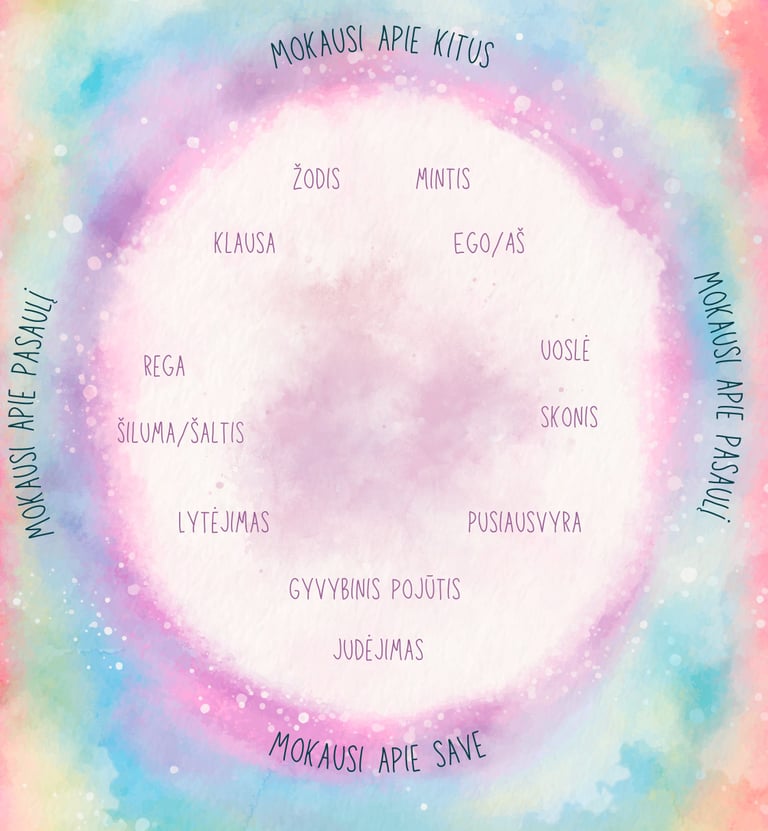 MOKAUSI APIE KITUS
ŽODIS
MINTIS
KLAUSA
EGO/AŠ
MOKAUSI APIE PASAULĮ
MOKAUSI APIE PASAULĮ
REGA
UOSLĖ
ŠILUMA/ŠALTIS
SKONIS
LYTĖJIMAS
PUSIAUSVYRA
GYVYBINIS POJŪTIS
JUDĖJIMAS
MOKAUSI APIE SAVE